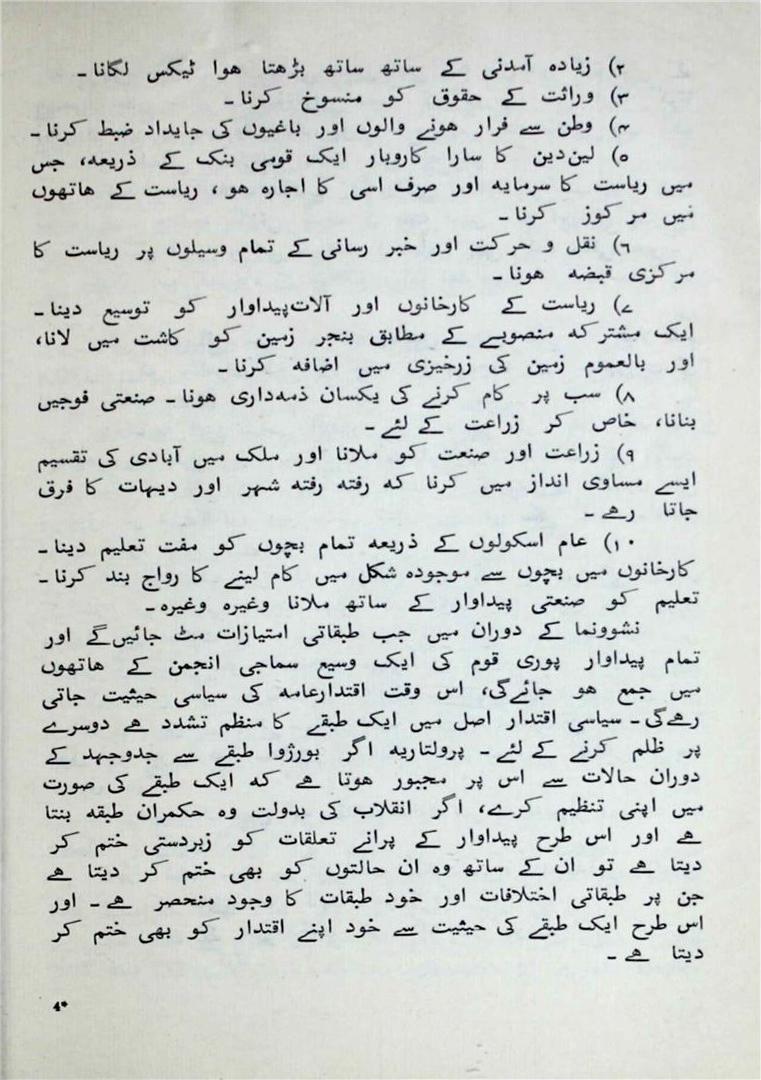 ۲) زیادہ آمدنی کے ساتھ ساتھ بڑھتا ہوا ٹیکس لگانا۔
۳) وراثت کے حقوق کو منسوخ کرنا۔
۴) وطن سے فرار ہونے والوں اور باغیوں کی جایداد ضبط کرنا۔
۵) لین‌دین کا سارا کاروبار ایک قومی بنک کے ذریعہ، جس
میں ریاست کا سرمایہ اور صرف اسی کا اجارہ ہو، ریاست کے ہاتھوں
میں مرکوز کرنا۔
۶) نقل و حرکت اور خبر رسانی کے تمام وسیلوں پر ریاست کا
مرکزی قبضہ ہونا۔
۷) ریاست کے کارخانوں اور آلات‌پیداوار کو توسیع دینا۔
ایک مشترکہ منصوبے کے مطابق بنجر زمین کو کاشت میں لانا،
اور بالعموم زمین کی زرخیزی میں اضافہ کرنا۔
۸) سب پر کام کرنے کی یکسان ذمہ‌داری ہونا۔ صنعتی فوجیں
بنانا، خاص کر زراعت کے لئے۔
۹) زراعت اور صنعت کو ملانا اور ملک میں آبادی کی تقسیم
ایسے مساوی انداز میں کرنا کہ رفتہ رفتہ شہر اور دیہات کا فرق
جاتا رہے۔
۱۰) عام اسکولوں کے ذریعہ تمام بچوں کو مفت تعلیم دینا۔
کارخانوں میں بچوں سے موجودہ شکل میں کام لینے کا رواج بند کرنا۔
تعلیم کو صنعتی پیداوار کے ساتھ ملانا وغیرہ وغیرہ۔
نشوونما کے دوران میں جب طبقاتی امتیازات مٹ جائیں‌گے اور
تمام پیداوار پوری قوم کی ایک وسیع سماجی انجمن کے ہاتھوں
میں جمع ہو جائے‌گی، اس وقت اقتدارعامہ کی سیاسی حیثیت جاتی
رہے‌گی۔ سیاسی اقتدار اصل میں ایک طبقے کا منظم تشدد ہے دوسرے
پر ظلم کرنے کے لئے۔ پرولتاریہ اگر بورژوا طبقے سے جدوجہد کے
دوران حالات سے اس پر مجبور ہوتا ہے کہ ایک طبقے کی صورت
میں اپنی تنظیم کرے، اگر انقلاب کی بدولت وہ حکمران طبقہ بنتا
ہے اور اس طرح پیداوار کے پرانے تعلقات کو زبردستی ختم کر
دیتا ہے تو ان کے ساتھ وہ ان حالتوں کو بھی ختم کر دیتا ہے
جن پر طبقاتی اختلافات اور خود طبقات کا وجود منحصر ہے۔ اور
اس طرح ایک طبقے کی حیثیت سے خود اپنے اقتدار کو بھی ختم کر
دیتا ہے۔
4*